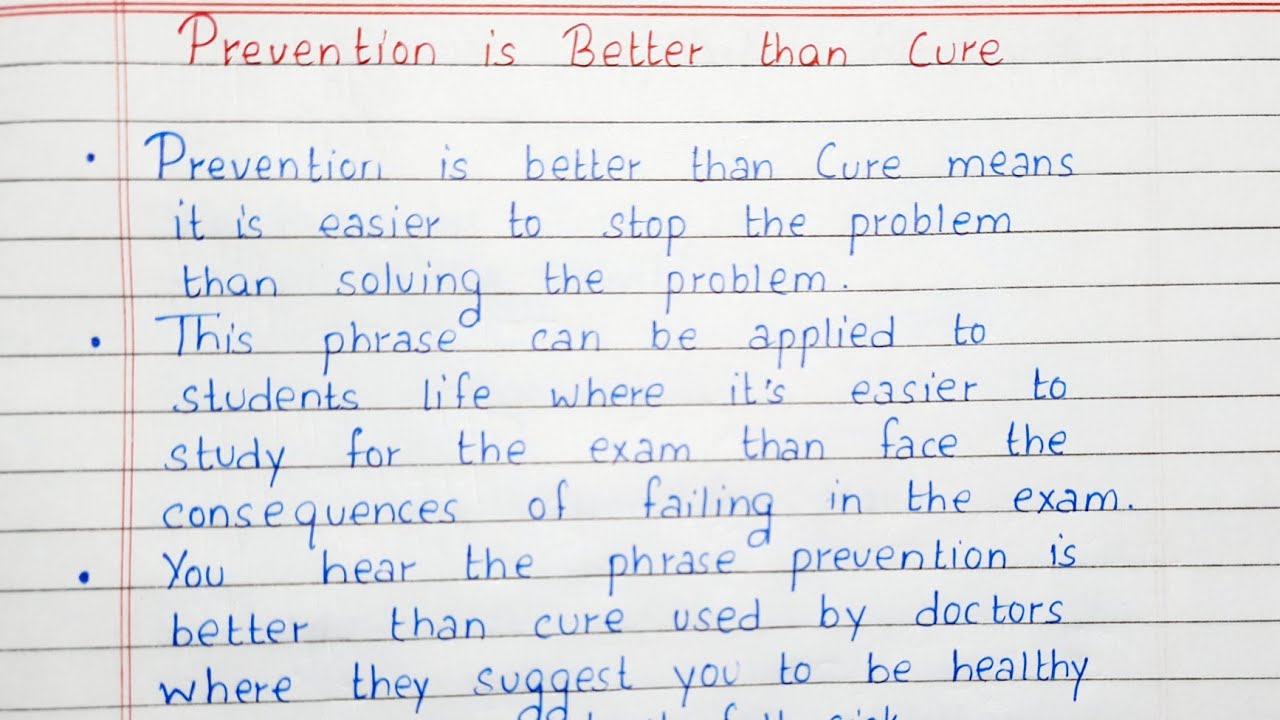 Prevention is Better than Cure
• Prevention is better than Cure means
it is easier to stop the problem
than solving the problem.
• This phrase can be applied to
students life where it's easier to
study for the exam than face the
consequences of failing in the exam.
• You hear the phrase prevention is
better than cure used by doctors
where they suggest you to be healthy